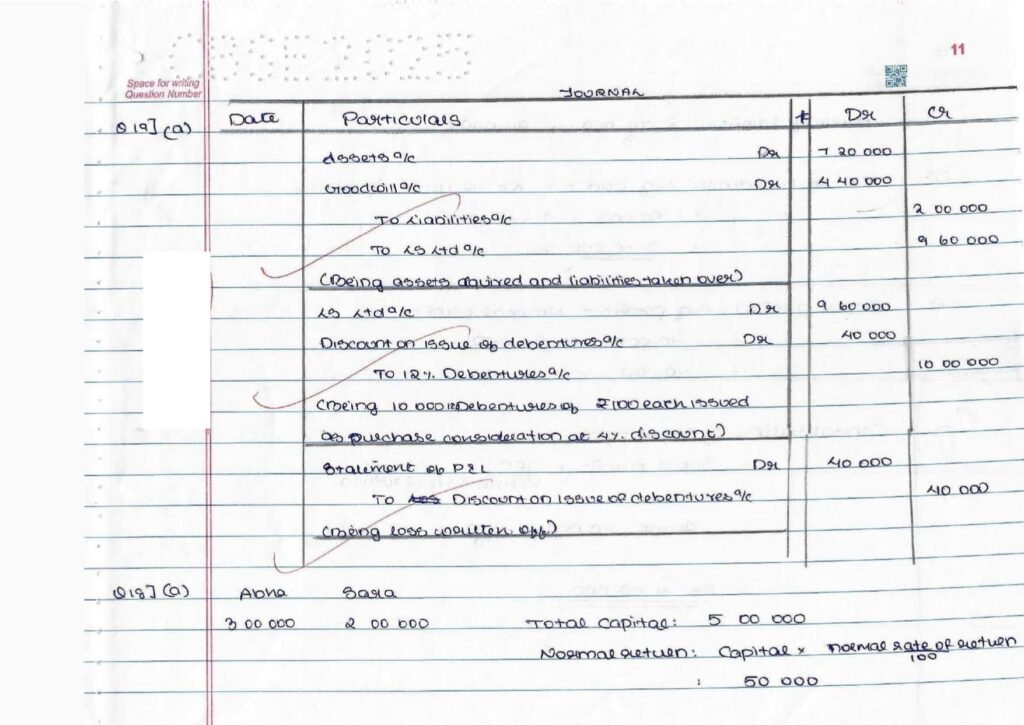 CBSE 2025
11
Space for writing
Question Number
JOURNAL
Q19] (a) Date Particulars Dr Cr
Assets a/c Dr 7 20 000
Goodwill a/c Dr 4 40 000
To Liabilities a/c 2 00 000
To LS Ltd a/c 9 60 000
(Being assets aquired and liabilities taken over)
LS Ltd a/c Dr 9 60 000
Discount on issue of debentures a/c Dr 40 000
To 12% Debentures a/c 10 00 000
(Being 10 000 12% Debentures of ₹100 each issued
as purchase consideration at 4% discount)
Statement of P&L Dr 40 000
To Discount on issue of debentures a/c 40 000
(Being loss written off)
Q18] (a) Abha Sara
3 00 000 2 00 000 Total Capital: 5 00 000
Normal return: Capital × normal rate of return
100
: 50 000